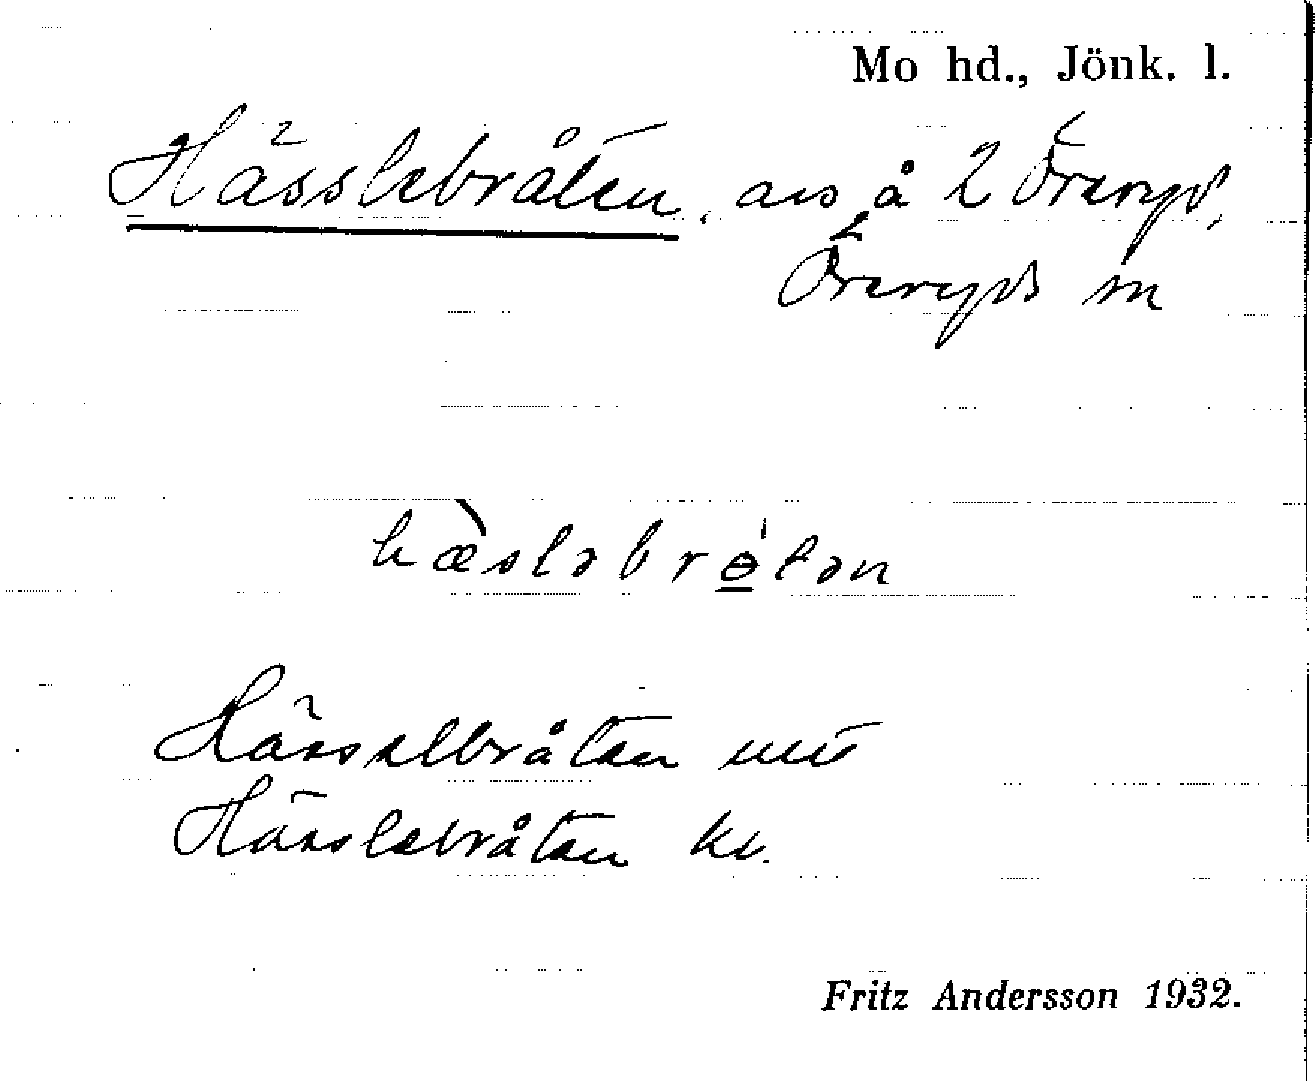 Mo hd., Jönk. l.
Hässlebråten, avs å 2 Öreryd,
Öreryds sn
hæ̀sləbrɵ̀tən
Hässelbråten
Hässlebråten
Fritz Andersson 1932.